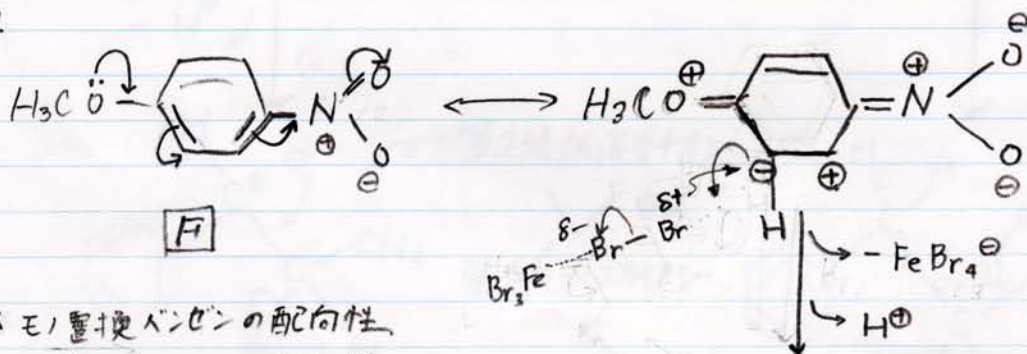 H₃CÖ N ⊕ O O ⊖ ⟷ H₃C O ⊕ = ⊖ H ⊕ = N ⊕ O ⊖ O ⊖
F
δ- Br — Br δ+
Br₃Fe
- FeBr₄ ⊖
モノ置換ベンゼンの配向性、
H ⊕